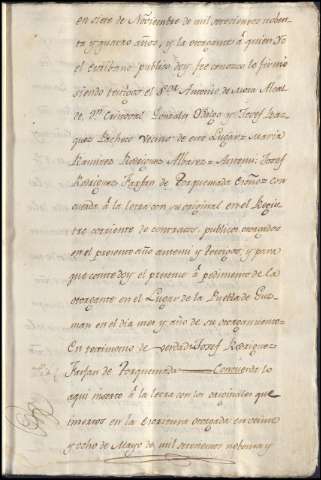 en siete de Noviembre de mil setecientos noben
ta y quatro años, y la otorgante á quien Yo
el escribano publico doy fee conozco lo firmo
siendo testigos el Sor Dn Antonio de Mora Alcal
de, Dn Christoval Gonzalez Hidalgo y Josef Baz
quez Pacheco vecinos de este Lugar= Maria
Ramirez Rodriguez Albarez= Antemi: Josef
Rodriguez Farfan de Torquemada
cuerda á la letra con su original en el Regis
tro corriente de contratos publicos otorgados
en el presente año antemi y testigos, y para
que conste doy el presente á pedimento de la
otorgante en el Lugar de la Puebla de Guz
man en el dia mes y año de su otorgamiento=
En testimonio de verdad= Josef Rodriguez
Farfan de Torquemada Concuerda lo
aqui inserto á la letra con los originales que
insertos en la escritura otorgada en veinte
y ocho de Mayo de mil setecientos noventa y